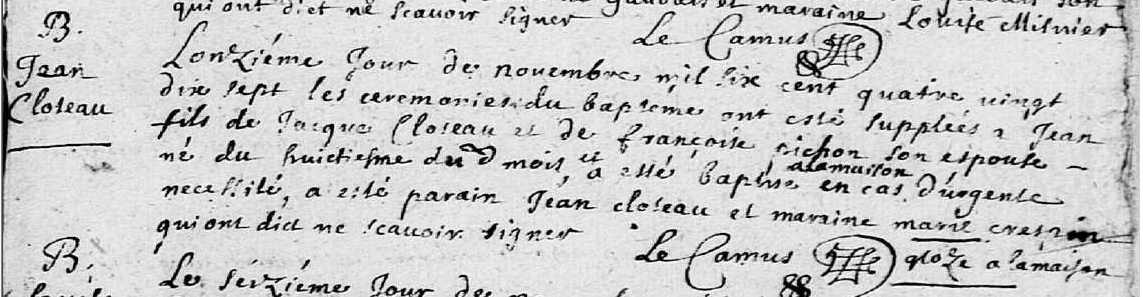 qui ont dict ne scavoir signer et maraine Louise Misnier
Le Camus
B.
Jean
Closeau
Lonziéme Jour de novembre mil six cent quatre vingt
dix sept les ceremonies du baptéme ont esté supplées a Jean
fils de Jacque Closeau et de françoise pichon son espouse
né du huictiesme dud mois, et a esté baptisé a la maison en cas d'urgente
necessité, a esté parain Jean closeau et maraine marie crespin
qui ont dict ne scavoir signer
Le Camus gloze a la maison
B.
Le séiziéme Jour de